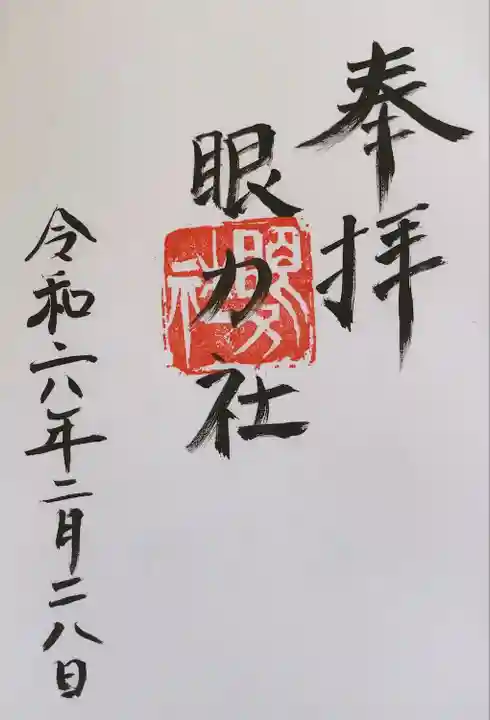 奉拝
眼力社
眼力社
令和六年二月二八日